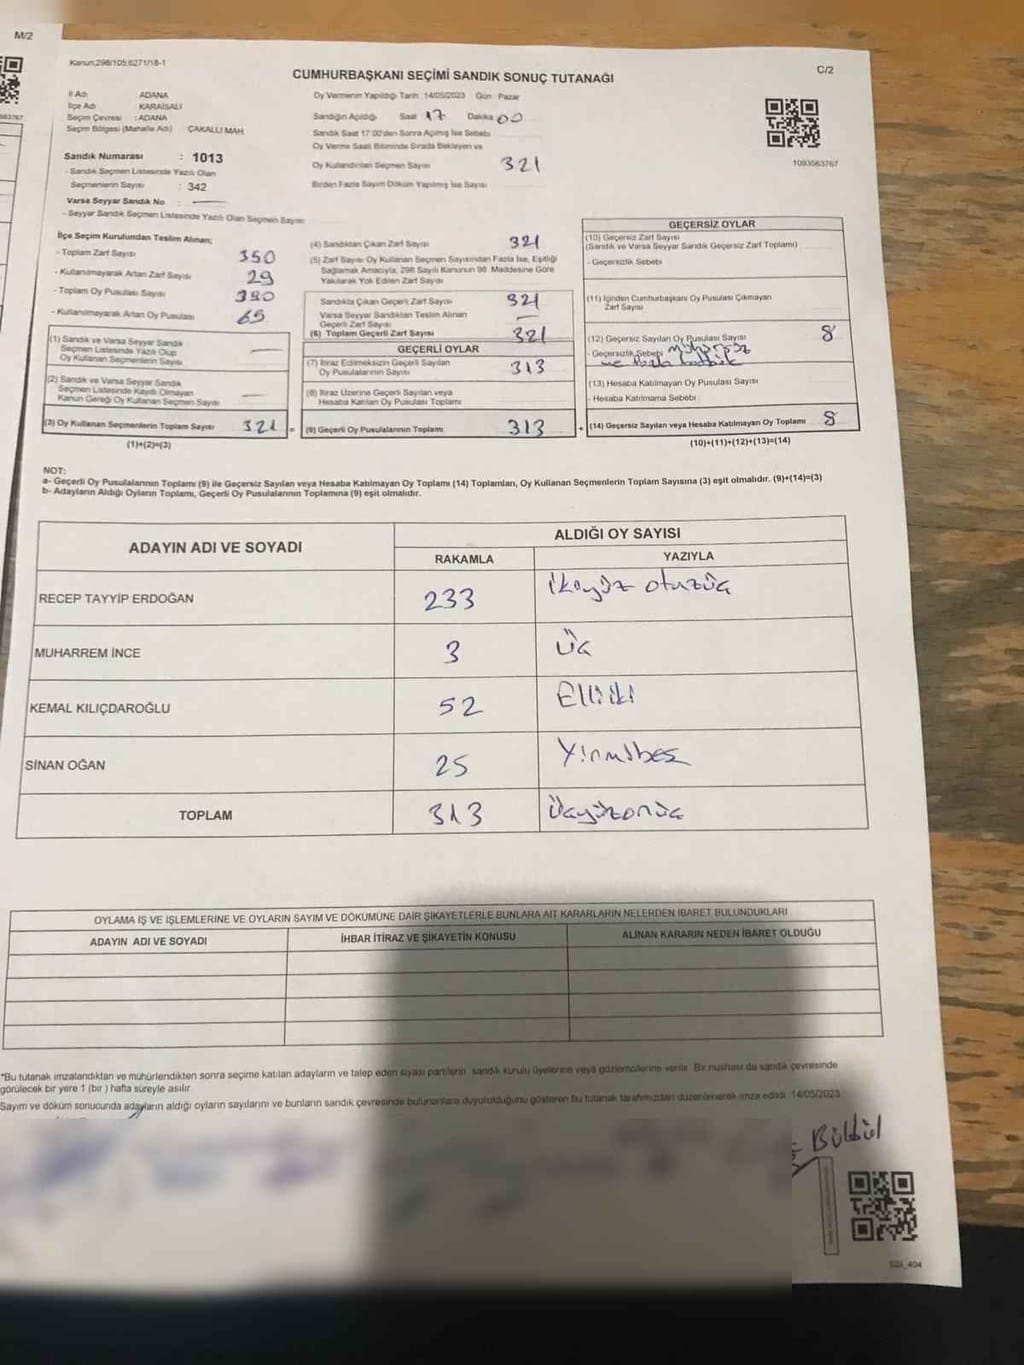 M/2
Kanun:298/105;6271/18-1
CUMHURBAŞKANI SEÇİMİ SANDIK SONUÇ TUTANAĞI
C/2
İl Adı ADANA
İlçe Adı KARAİSALI
Seçim Çevresi : ADANA
Seçim Bölgesi (Mahalle Adı) ÇAKALLI MAH.
Oy Vermenin Yapıldığı Tarih 14/05/2023 Gün Pazar
Sandığın Açıldığı Saat 17 Dakika 00
Sandık Saat 17:00'den Sonra Açılmış İse Sebebi
Oy Verme Saati Bitiminde Sırada Bekleyen ve
Oy Kullandırılan Seçmen Sayısı 321
Birden Fazla Sayım Döküm Yapılmış İse Sayısı
1093563767
563767
Sandık Numarası : 1013
- Sandık Seçmen Listesinde Yazılı Olan
Seçmenlerin Sayısı : 342
Varsa Seyyar Sandık No :
- Seyyar Sandık Seçmen Listesinde Yazılı Olan Seçmen Sayısı
İlçe Seçim Kurulundan Teslim Alınan;
- Toplam Zarf Sayısı 350
- Kullanılmayarak Artan Zarf Sayısı 29
- Toplam Oy Pusulası Sayısı 380
- Kullanılmayarak Artan Oy Pusulası 65
(1) Sandık ve Varsa Seyyar Sandık
Seçmen Listesinde Yazılı Olup
Oy Kullanan Seçmenlerin Sayısı
(2) Sandık ve Varsa Seyyar Sandık
Seçmen Listesinde Kayıtlı Olmayan
Kanun Gereği Oy Kullanan Seçmen Sayısı
(3) Oy Kullanan Seçmenlerin Toplam Sayısı 321
(1)+(2)=(3)
(4) Sandıktan Çıkan Zarf Sayısı 321
(5) Zarf Sayısı Oy Kullanan Seçmen Sayısından Fazla İse, Eşitliği
Sağlamak Amacıyla, 298 Sayılı Kanunun 98. Maddesine Göre
Yakılarak Yok Edilen Zarf Sayısı
Sandıkta Çıkan Geçerli Zarf Sayısı 321
Varsa Seyyar Sandıktan Teslim Alınan
Geçerli Zarf Sayısı
(6) Toplam Geçerli Zarf Sayısı 321
GEÇERLİ OYLAR
(7) İtiraz Edilmeksizin Geçerli Sayılan
Oy Pusulalarının Sayısı 313
(8) İtiraz Üzerine Geçerli Sayılan veya
Hesaba Katılan Oy Pusulası Toplamı
= (9) Geçerli Oy Pusulalarının Toplamı 313
GEÇERSİZ OYLAR
(10) Geçersiz Zarf Sayısı
(Sandık ve Varsa Seyyar Sandık Geçersiz Zarf Toplamı)
- Geçersizlik Sebebi
(11) İçinden Cumhurbaşkanı Oy Pusulası Çıkmayan
Zarf Sayısı
(12) Geçersiz Sayılan Oy Pusulası Sayısı 8
- Geçersizlik Sebebi
(13) Hesaba Katılmayan Oy Pusulası Sayısı
- Hesaba Katılmama Sebebi
+ (14) Geçersiz Sayılan veya Hesaba Katılmayan Oy Toplamı 8
(10)+(11)+(12)+(13)=(14)
NOT:
a- Geçerli Oy Pusulalarının Toplamı (9) ile Geçersiz Sayılan veya Hesaba Katılmayan Oy Toplamı (14) Toplamları, Oy Kullanan Seçmenlerin Toplam Sayısına (3) eşit olmalıdır. (9)+(14)=(3)
b- Adayların Aldığı Oyların Toplamı, Geçerli Oy Pusulalarının Toplamına (9) eşit olmalıdır.
ADAYIN ADI VE SOYADI
ALDIĞI OY SAYISI
RAKAMLA YAZIYLA
RECEP TAYYİP ERDOĞAN 233 İkiyüz otuzüç
MUHARREM İNCE 3 Üç
KEMAL KILIÇDAROĞLU 52 Elliiki
SİNAN OĞAN 25 Yirmibeş
TOPLAM 313 Üçyüzonüç
OYLAMA İŞ VE İŞLEMLERİNE VE OYLARIN SAYIM VE DÖKÜMÜNE DAİR ŞİKAYETLERLE BUNLARA AİT KARARLARIN NELERDEN İBARET BULUNDUKLARI
ADAYIN ADI VE SOYADI İHBAR İTİRAZ VE ŞİKAYETİN KONUSU ALINAN KARARIN NEDEN İBARET OLDUĞU
*Bu tutanak imzalandıktan ve mühürlendikten sonra seçime katılan adayların ve talep eden siyasi partilerin sandık kurulu üyelerine veya gözlemcilerine verilir. Bir nüshası da sandık çevresinde
görülecek bir yere 1 (bir ) hafta süreyle asılır.
Sayım ve döküm sonucunda adayların aldığı oyların sayılarını ve bunların sandık çevresinde bulunanlara duyurulduğunu gösteren bu tutanak tarafımızdan düzenlenerek imza edildi. 14/05/2023
Bülbül